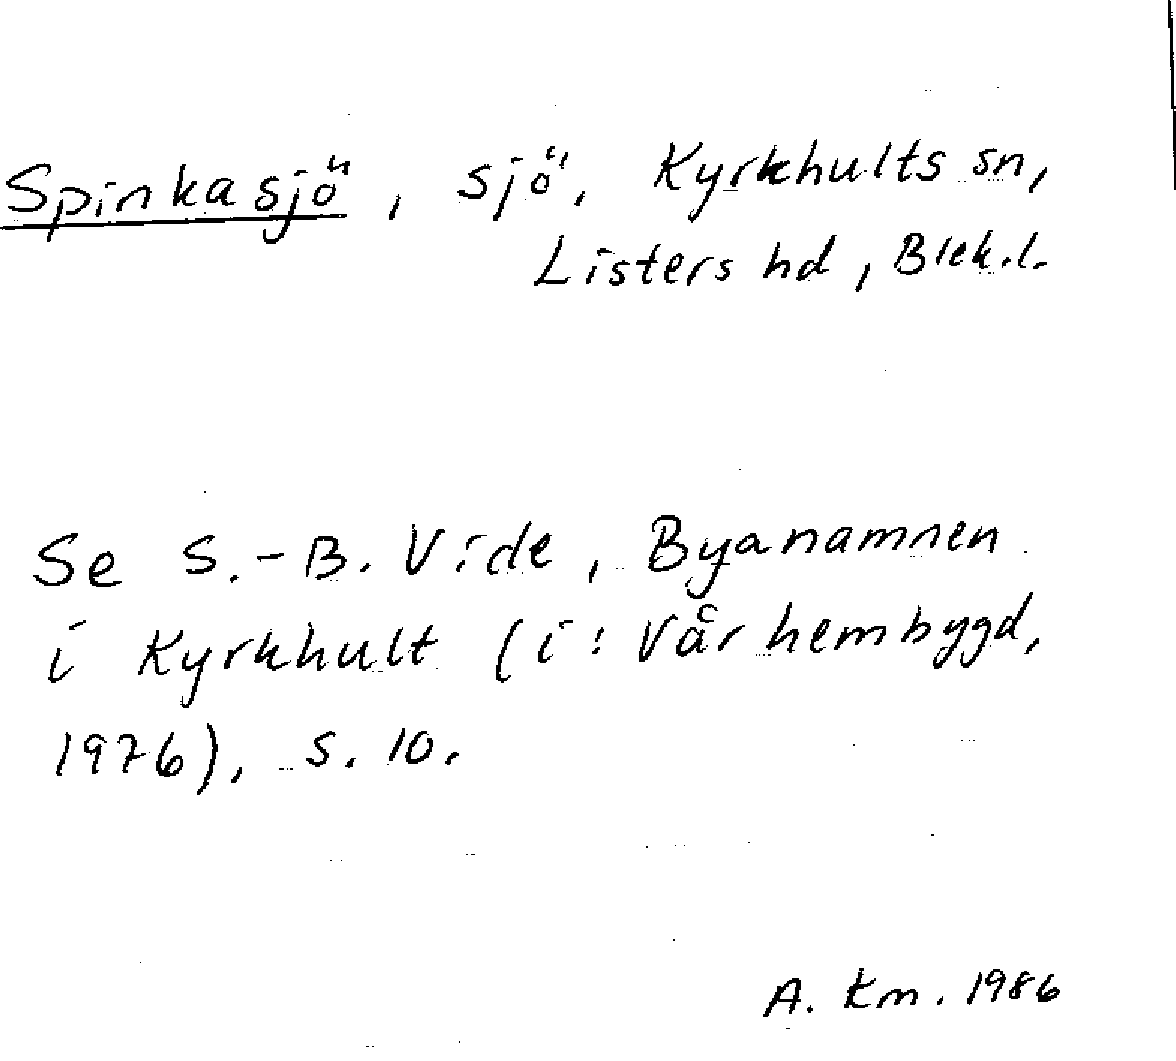 Spinkasjö, sjö, Kyrkhults sn,
Listers hd, Blek.l.
Se S.-B. Vide, Byanamnen
i Kyrkhult (i: Vår hembygd,
1976), s. 10.
A. Km. 1986